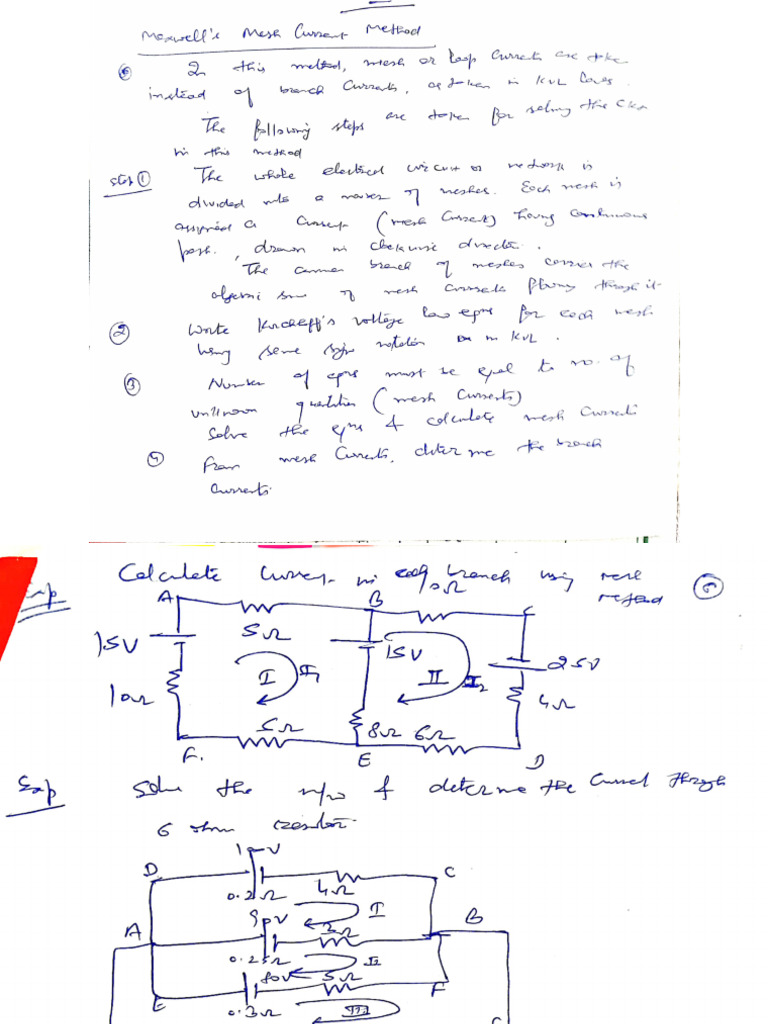 Maxwell's Mesh Current Method
In this method, mesh or loop currents are take
instead of branch currents, as taken in KVL laws.
The following steps are taken for solving the
in this method
Step ①
The whole electrical circuit or network is
divided into a number of meshes. Each mesh is
assigned a current (mesh current) having continuous
path, drawn in clockwise direction.
The common branch of meshes carries the
algebraic sum of mesh currents flowing through it
② Write Kirchoff's voltage law eqns for each mesh
using same sign notation as in KVL.
③ Number of eqns must be equal to no. of
unknown quantities (mesh currents)
Solve the eqns & calculate mesh currents
From mesh currents, determine the branch
currents.
Exp Calculate current in each branch using mesh
method ⑥
A B C
10Ω
5Ω
15V 15V 25V
I I1 II I2
10Ω 4Ω
5Ω 8Ω 6Ω
F. E D
Exp Solve the n/w & determine the current through
6 ohm resistor.
D C
0.2Ω 4Ω
I
A B
90V 3Ω
0.25Ω II
80V 5Ω
E F
0.3Ω III